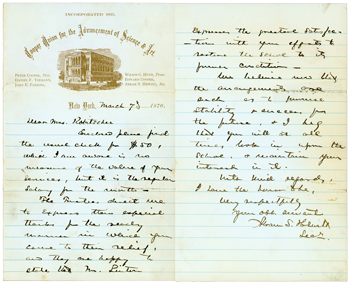 INCORPORATED 1857.
Cooper Union for the Advancement of Science & Art,
PETER COOPER, Pres.
DANIEL F. TIEMANN,
JOHN E. PARSONS,
WILSON G. HUNT, Treas.
EDWARD COOPER,
ABRAM S. HEWITT, Sec.
New York, March 7 1870.
Dear Mrs.
Enclosed please find
the usual check for $50,
which I am aware is no
measure of the value of your
services, but it is the regular
salary for the month.
The Trustees direct me
to express their especial
thanks for the ready
manner in which you
came to their relief,
and they are happy to
state that Mr.
expresses the greatest satisfac-
tion with your efforts to
restore the School to its
former condition.
We believe now that
the arrangements are
such as to promise
stability & success for
the future, & I beg
that you will at all
times, look in upon the
School, & maintain your
interest in it.
With kind regards,
I have the honor to be,
Very respectfully
Your obt servant
Abram S. Hewitt
Secy.